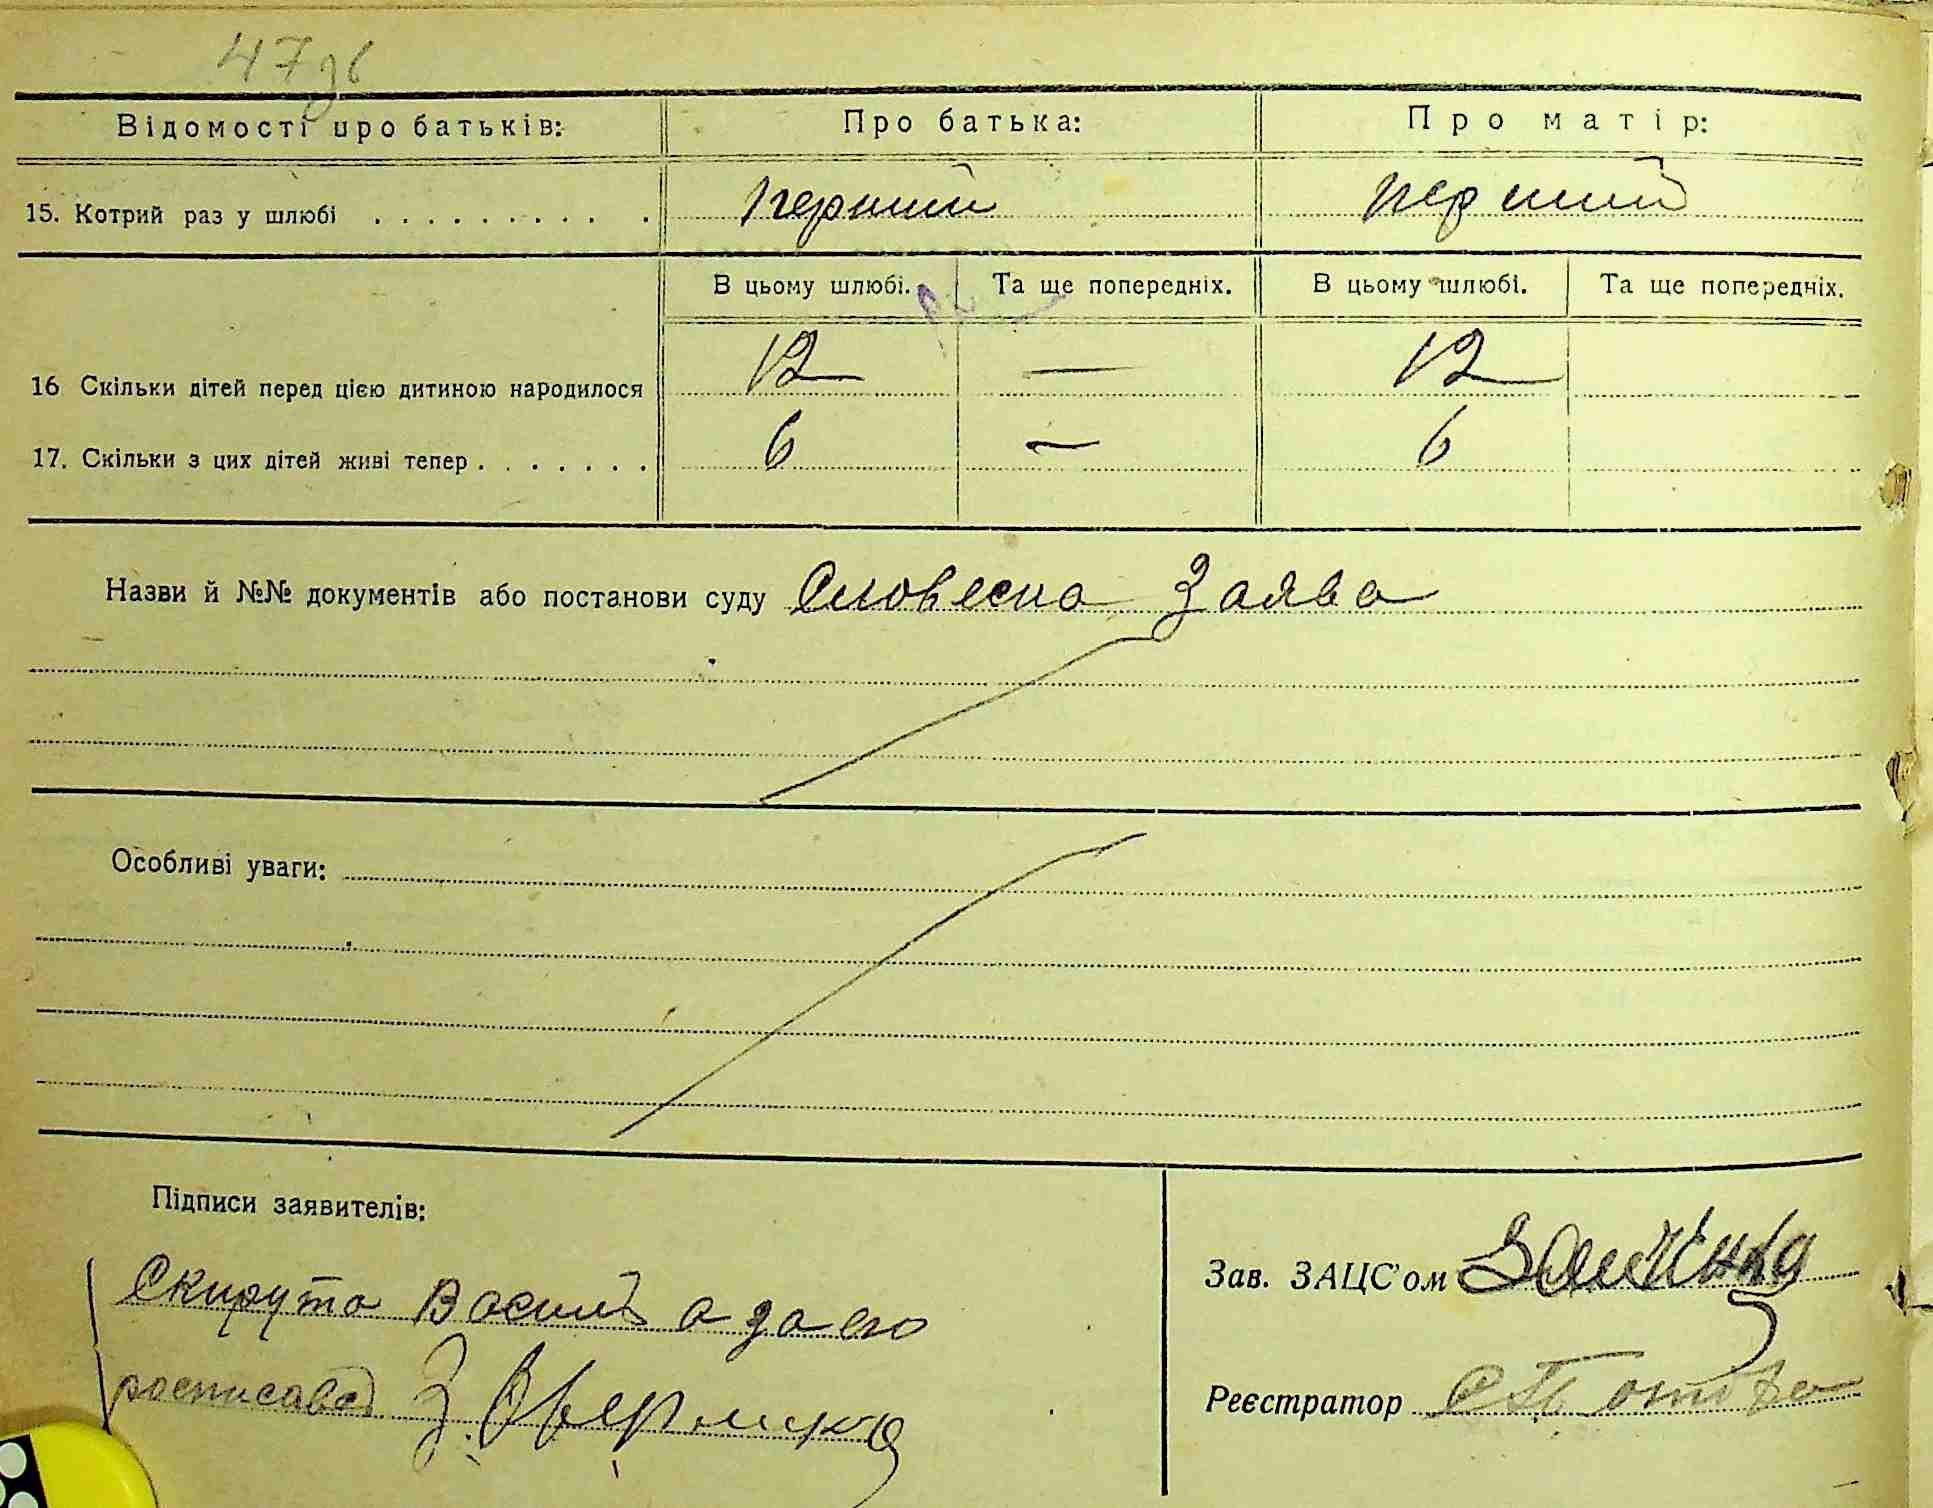 47зв
Відомості про батьків: Про батька: Про матір:
15. Котрий раз у шлюбі . . . . . . . . . . перший перший
В цьому шлюбі. Та ще попередніх. В цьому шлюбі. Та ще попередніх.
16 Скільки дітей перед цією дитиною народилося 12 — 12
17. Скільки з цих дітей живі тепер . . . . . . . 6 — 6
Назви й №№ документів або постанови суду Словесна Заява
Особливі уваги:
Підписи заявителів:
Зав. ЗАЦС'ом
Скирута Василь а за его
росписавсь З.
Реєстратор